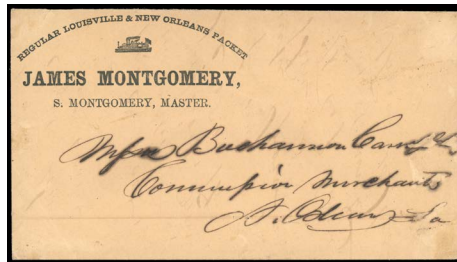 REGULAR LOUISVILLE & NEW ORLEANS PACKET
JAMES MONTGOMERY,
S. MONTGOMERY, MASTER.
Messrs Buchannon
Commission Merchants
N. Orleans La